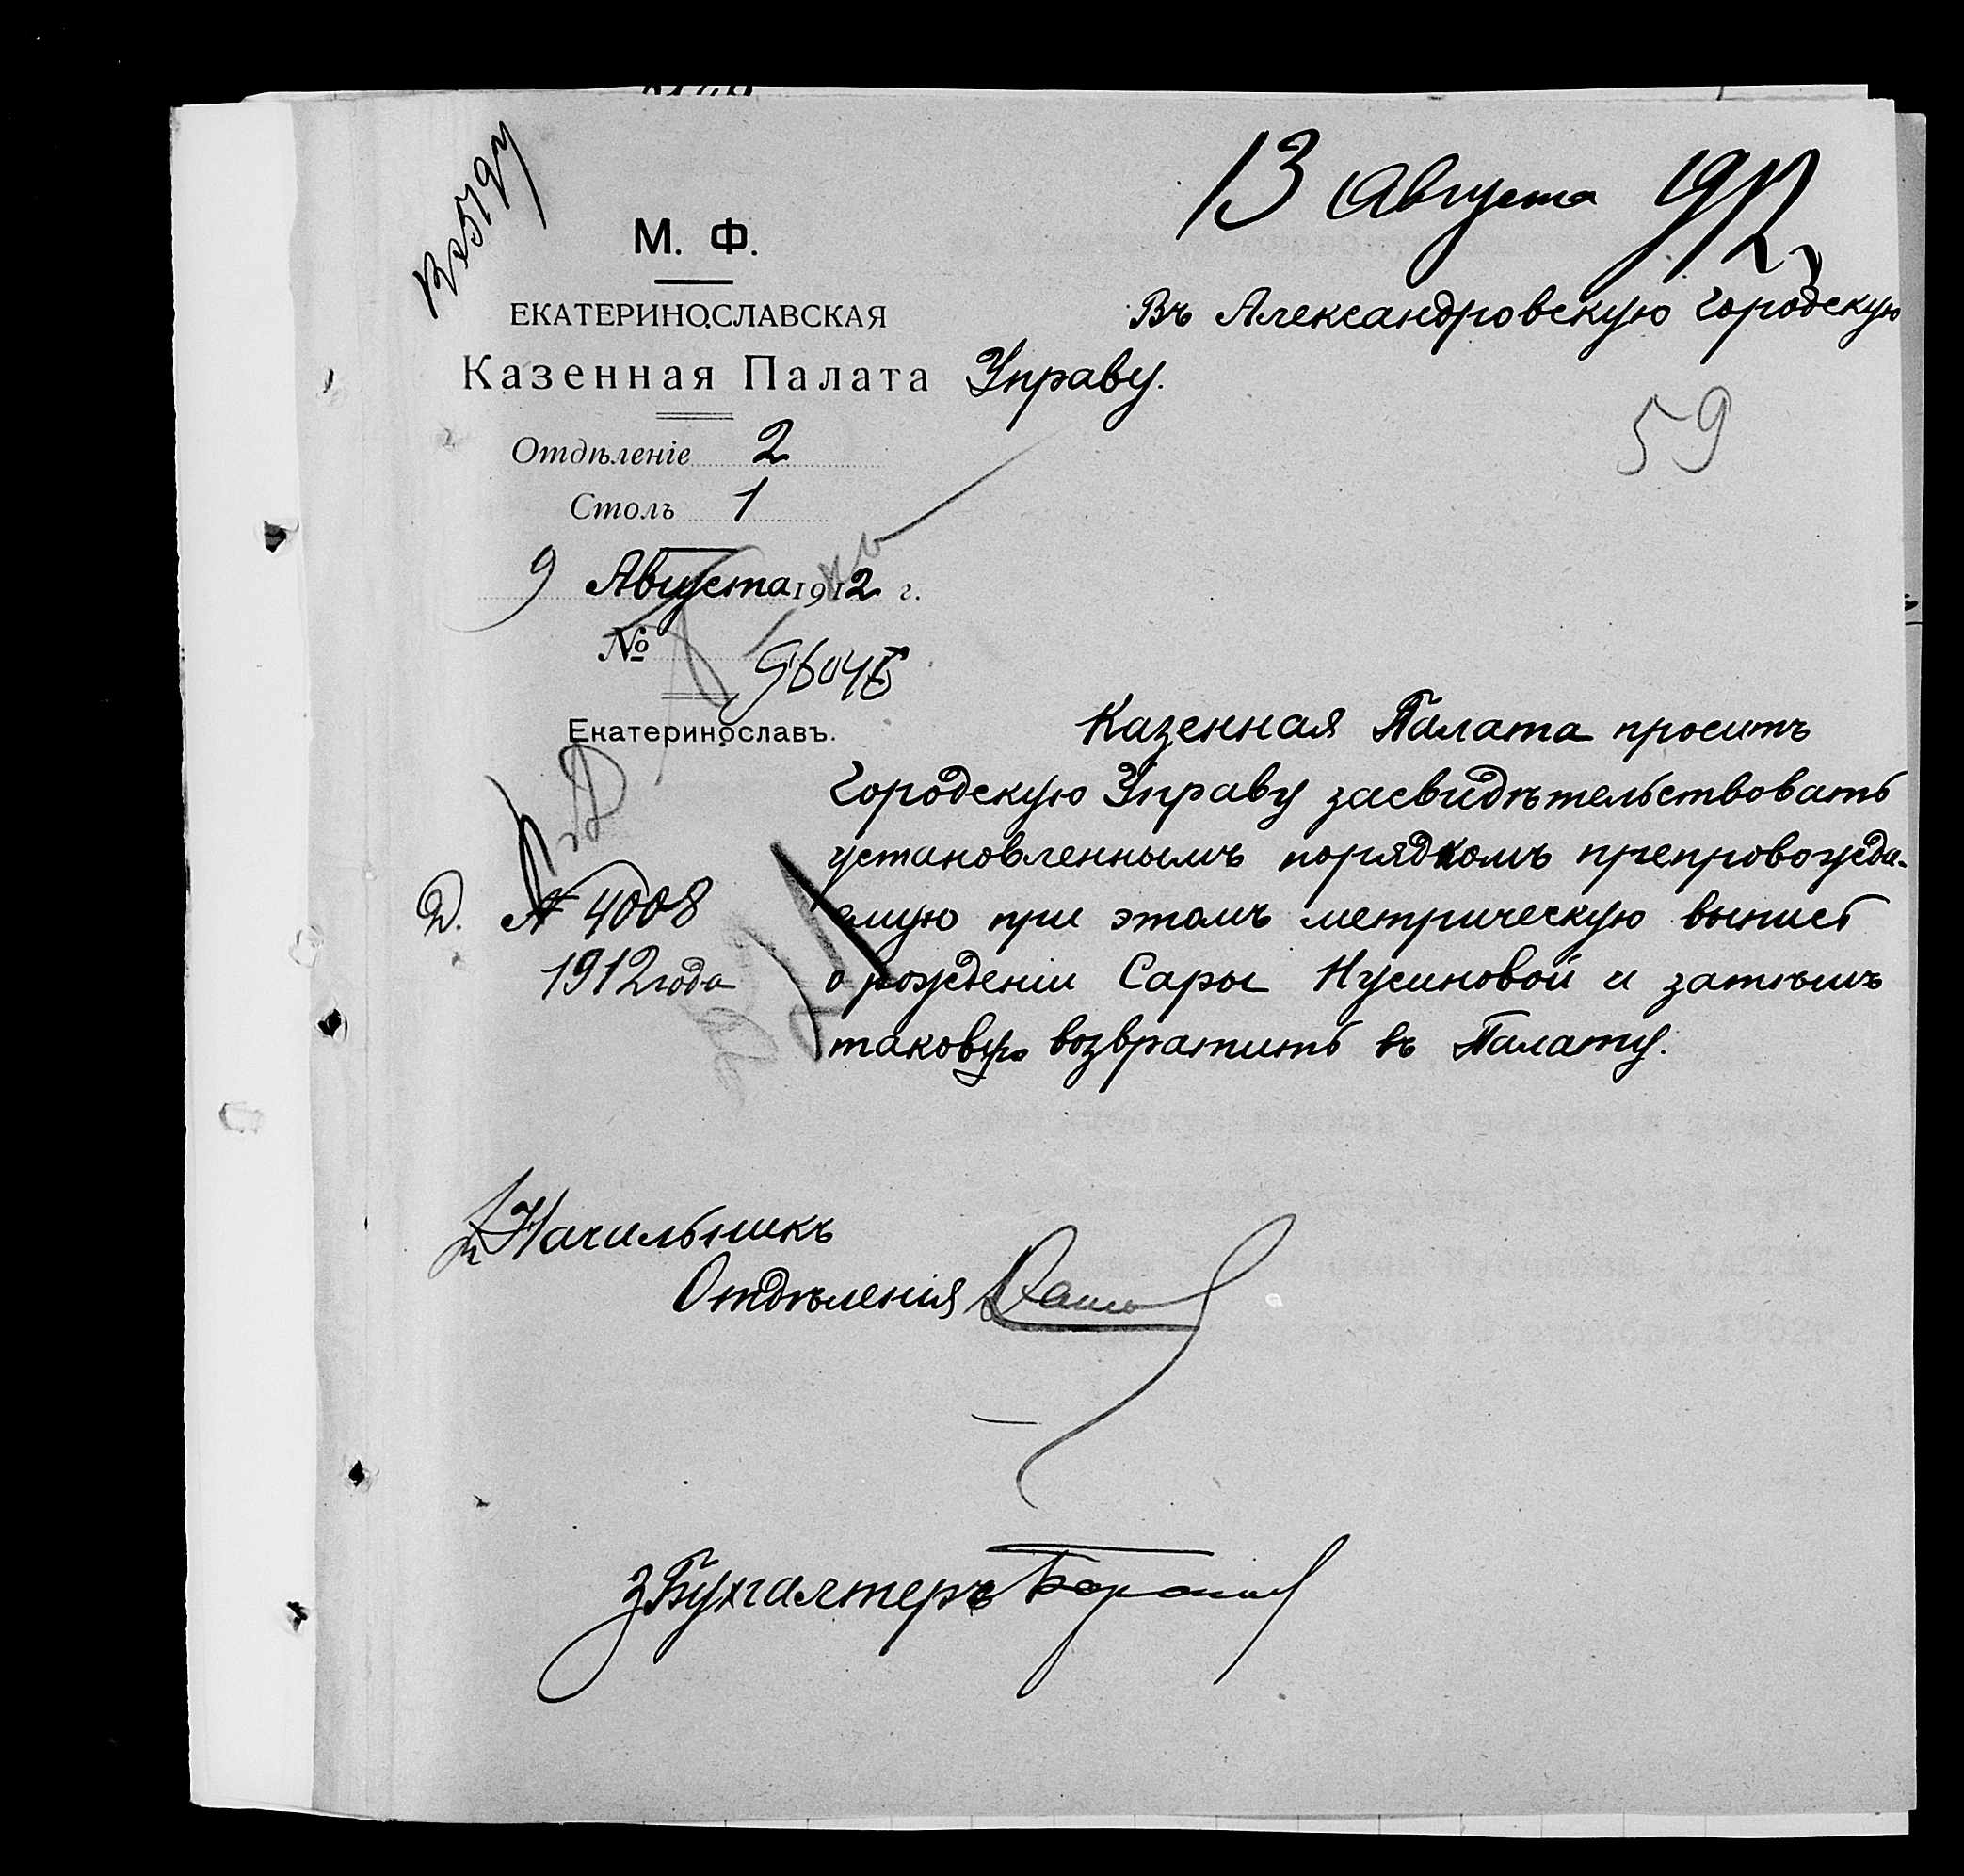 13 Августа 1912
М. Ф.
ЕКАТЕРИНОСЛАВСКАЯ
Казенная Палата
Въ Александровскую Городскую
Управу.
59
Отдѣленіе 2
Столъ 1
9 Августа 1912 г.
№
Екатеринославъ.
Д. № 4008
1912 года
Казенная Палата проситъ
Городскую Управу засвидѣтельствовать
установленнымъ порядкомъ препровожда-
емую при этомъ метрическую выпись
о рожденіи Сары Нусиновой и затѣмъ
таковую возвратить въ Палату.
Начальникъ
Отдѣленія
з Бухгалтеръ